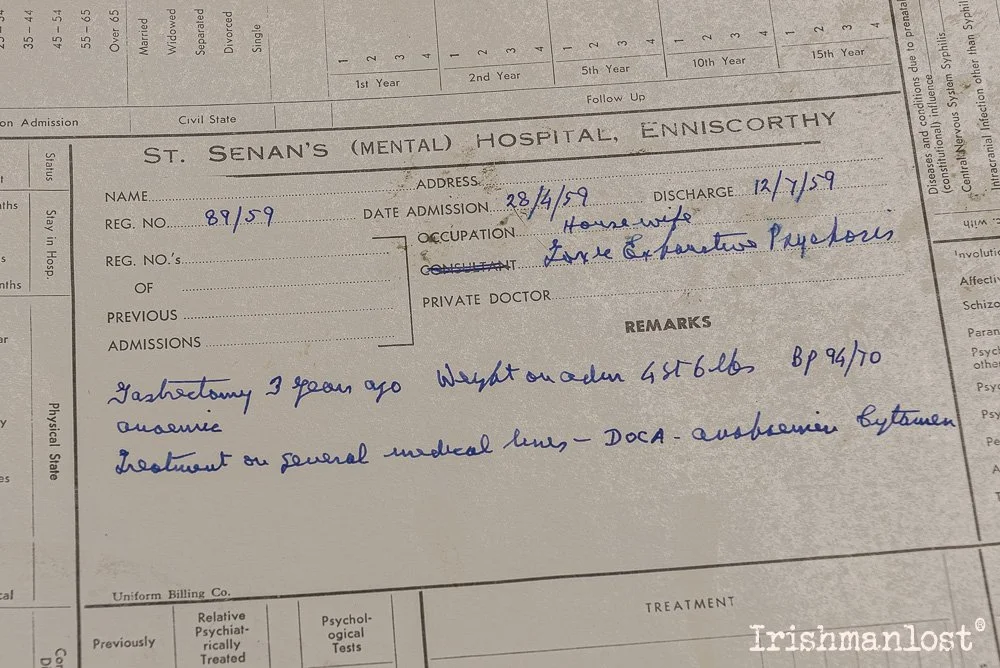 25-34
35 – 44
45 – 54
55 – 65
Over 65
Married
Widowed
Separated
Divorced
Single
1 2 3 4
1st Year
1 2 3 4
2nd Year
1 2 3 4
5th Year
1 2 3 4
10th Year
1 2 3 4
15th Year
on Admission
Civil State
Follow Up
Diseases and conditions due to prenatal
(constitutional) influence
Central Nervous System Syphilis.
Intracranial Infection other than Syphil
With
Status
Stay in Hosp.
Physical State
ST. SENAN'S (MENTAL) HOSPITAL, ENNISCORTHY
NAME
ADDRESS
REG. NO. 89/59
DATE ADMISSION 28/4/59
DISCHARGE 12/7/59
OCCUPATION Housewife
REG. NO.'s
CONSULTANT Toxic Exhaustive Psychosis
OF
PRIVATE DOCTOR
PREVIOUS
ADMISSIONS
REMARKS
Gastrectomy 3 years ago Weight on adm 4 st 6 lbs BP 94/70
anaemic
Treatment on general medical lines – DOCA - Cytamen
Involutio
Affecti
Schizo
Paran
Psych
other
Psyc
Psy
Pe
Uniform Billing Co.
Previously
Relative
Psychiat-
rically
Treated
Psychol-
ogical
Tests
TREATMENT
Irishmanlost®